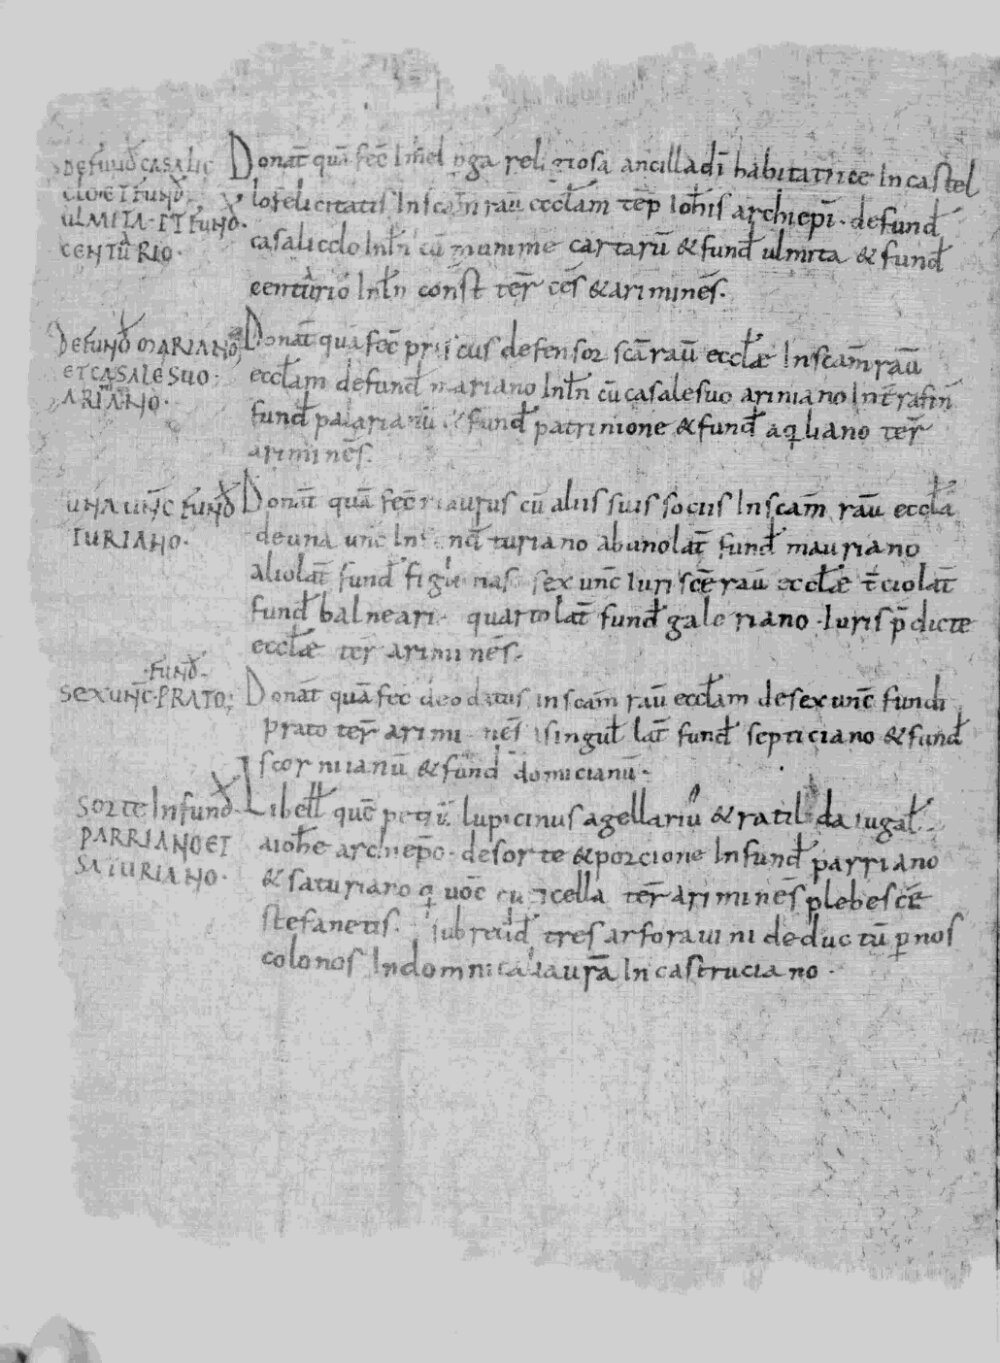 DEFUND CASALIC
CLO·ET FUND
ULMITA·ET FUND·
CENTURIO·
Donat quā fec Imel nga religiosa ancilla dī habitatrice In castel
lo felicitatis In scam rau eccłam tēp Iohis archiepī· de fund
casaliculo Intn cū munime cartarū & fund ulmita & fund
centurio Intn const ter ces & ariminēs·
DEFUND MARIANO
ET CASALE SUO·
ARIANO·
Donat quā fec priscus defensor scā rau eccłæ In scam rau
eccłam de fund mariano Intn cū casale suo arimiano Int rafin
fund patarianū & fund patrinione & fund aqliano ter
ariminēs·
UNA UNC FUND
TURIANO·
Donat quā fec maurus cū aliis suis sociis In scam rau eccła
de una unc In fund turiano ab uno lat fund mauriano
alio lat fund figulinas sex unc Iuri scē rau eccłæ tcio lat
fund balneari· quarto lat fund galeriano·Iuris p̄dicte
eccłæ ter ariminēs·
·FUND·
SEX UNC·PRATO;
Donat quā fec deodatus in scam rau eccłam de sex unc fundi
prato ter ariminēs singul lat fund septiciano & fund
scorniianū & fund domicianū·
SORTE In FUND
PARRIANO ET
SATURIANO·
Libell quē petiī lupicinus agellariū & ratilda iugal
a iohe archiepō· de sorte & porcione In fund parriano
& saturiano q uoc cucicella ter ariminēs plebe scē
stefanetis· sub redd tres arfora uini deductū p nos
colonos In domnicalia urā In castruciano·